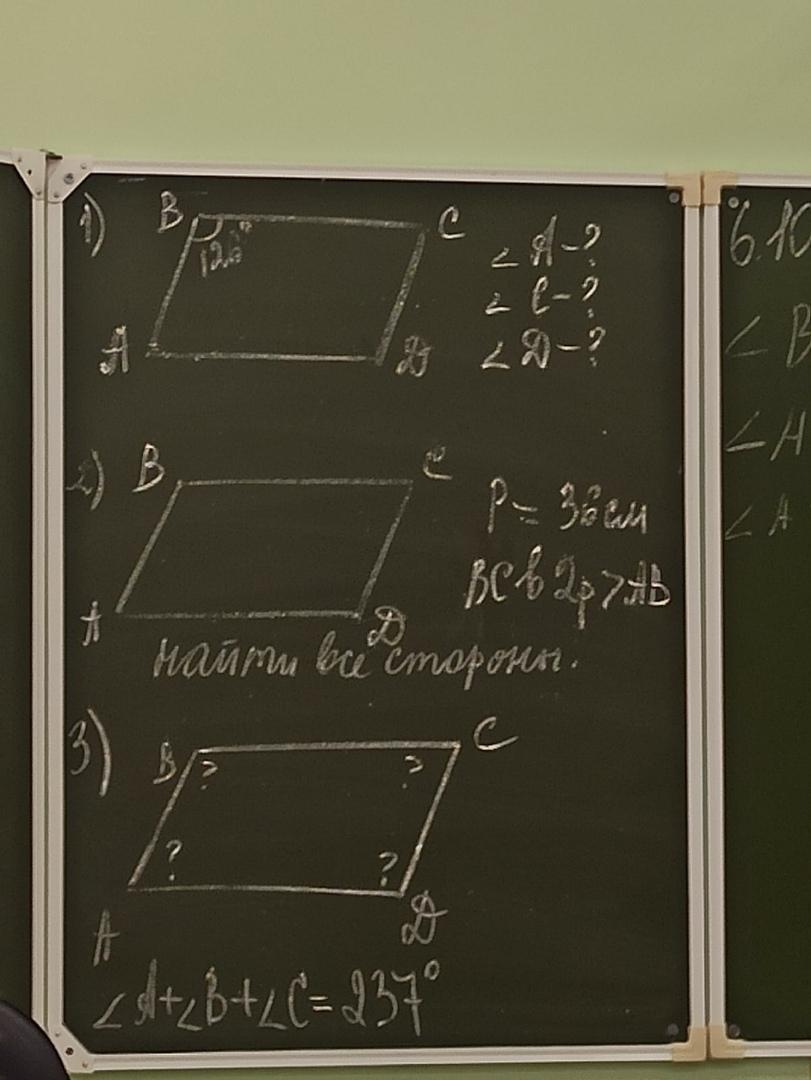 1)
B C
128°
A D
∠A-?
∠C-?
∠D-?
2)
B C
A D
P = 36 см
BC в 2р > AB
найти все стороны.
3)
B ? ? C
? ?
A D
∠A+∠B+∠C=237°
∠B
∠A
∠A